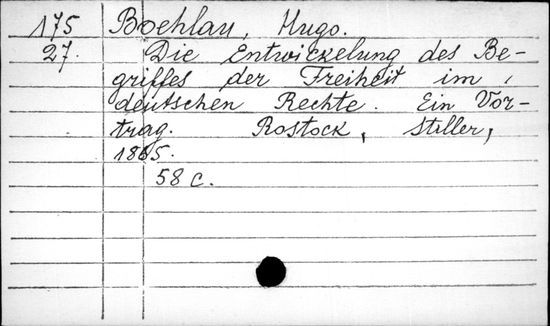 175 Boehlau, Hugo.
27. Die Entwickelung des Be-
griffes der Freiheit im
deutschen Rechte. Ein Vor-
trag. Rostock, Stiller,
1865.
58 c.